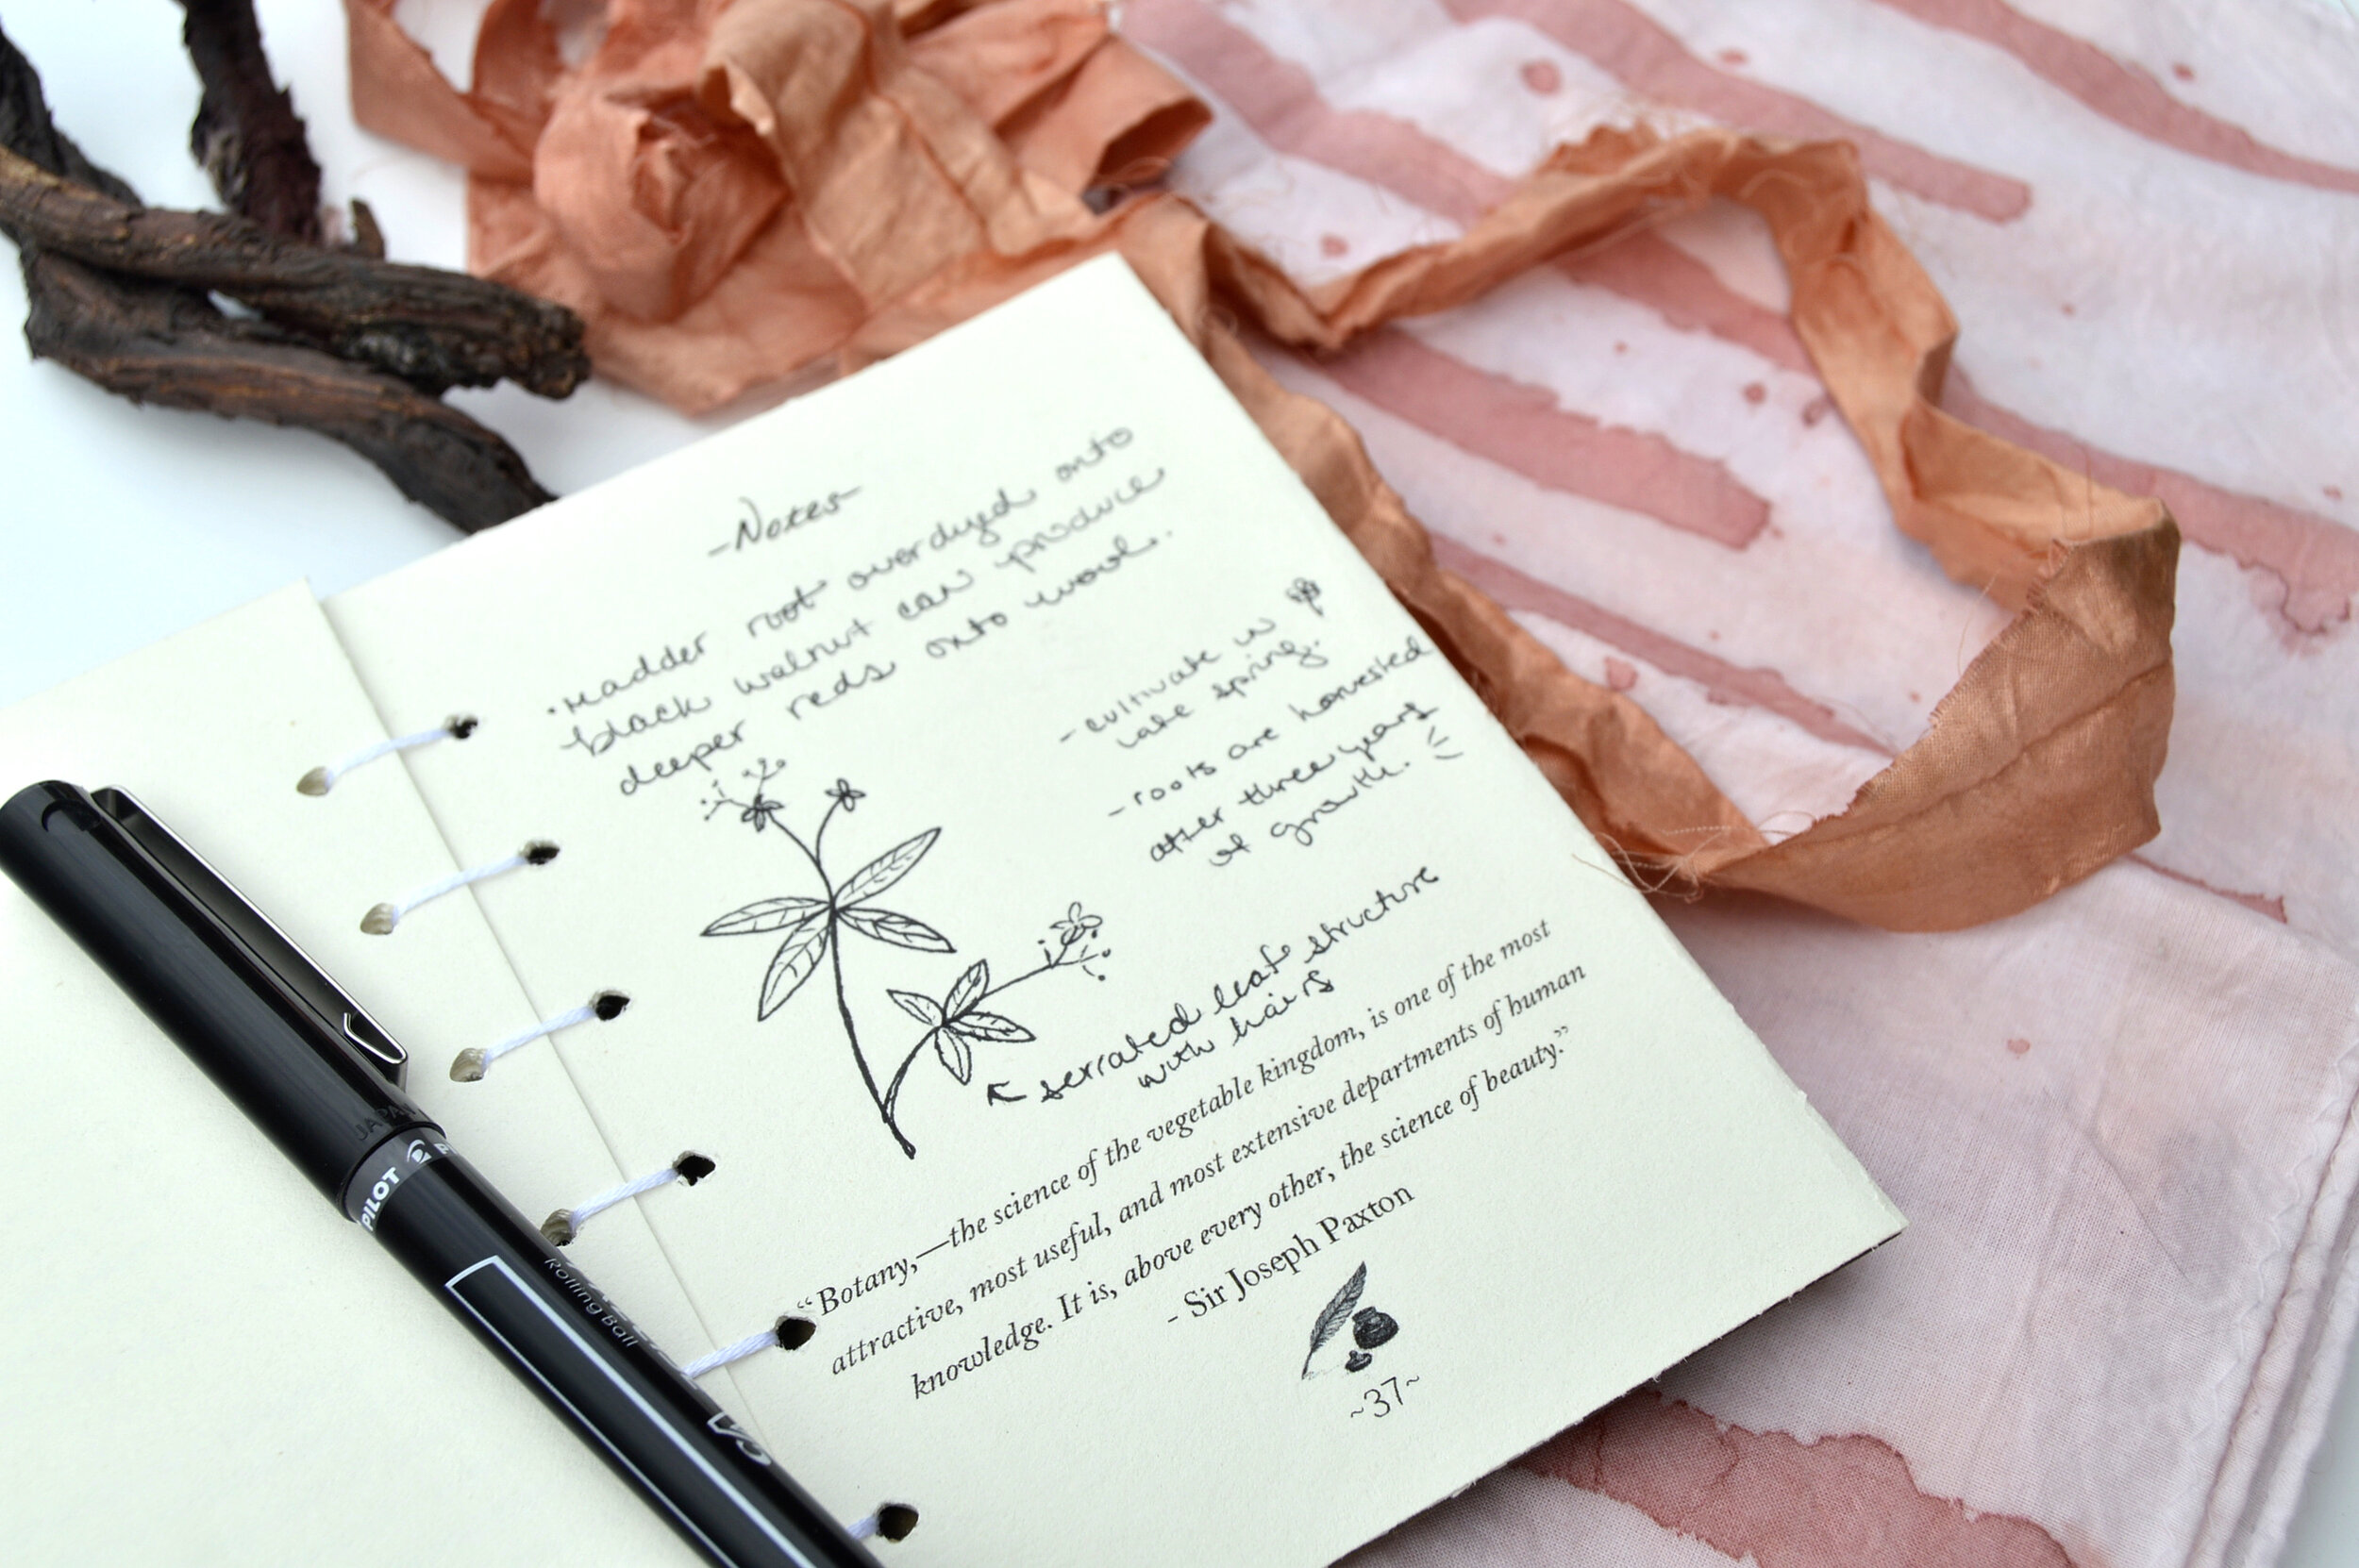 -Notes-
·Madder root overdyed onto
black walnut can produce
deeper reds onto wool.
- cultivate in
late spring.
- roots are harvested
after three years
of growth.
serrated leaf structure
with hairs
“Botany,—the science of the vegetable kingdom, is one of the most
attractive, most useful, and most extensive departments of human
knowledge. It is, above every other, the science of beauty.”
- Sir Joseph Paxton
~37~
JAPAN
PILOT
Rolling Ball